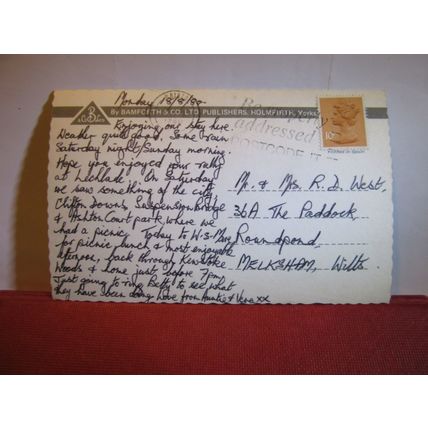 Monday 18/8/80
By BAMFORTH & CO. LTD. PUBLISHERS, HOLMFIRTH, Yorks
Enjoying our stay here.
Weather quite good. Some rain
Saturday night/Sunday morning.
Hope you enjoyed your rally
at Lechlade. On Saturday
we saw something of the city
Clifton Downs, Suspension Bridge
& Ashton Court park, where we
had a picnic. Today to W-S-Mare
for picnic lunch & most enjoyable
afternoon, back through
Woods & home just before 7pm.
Just going to ring Betty to see what
they have been doing. Love from Auntie & Vera xx
addressed
POSTCODE IT
10P
Mr. & Mrs. R. D. West,
36A The Paddock,
Roundpond,
MELKSHAM, Wilts.